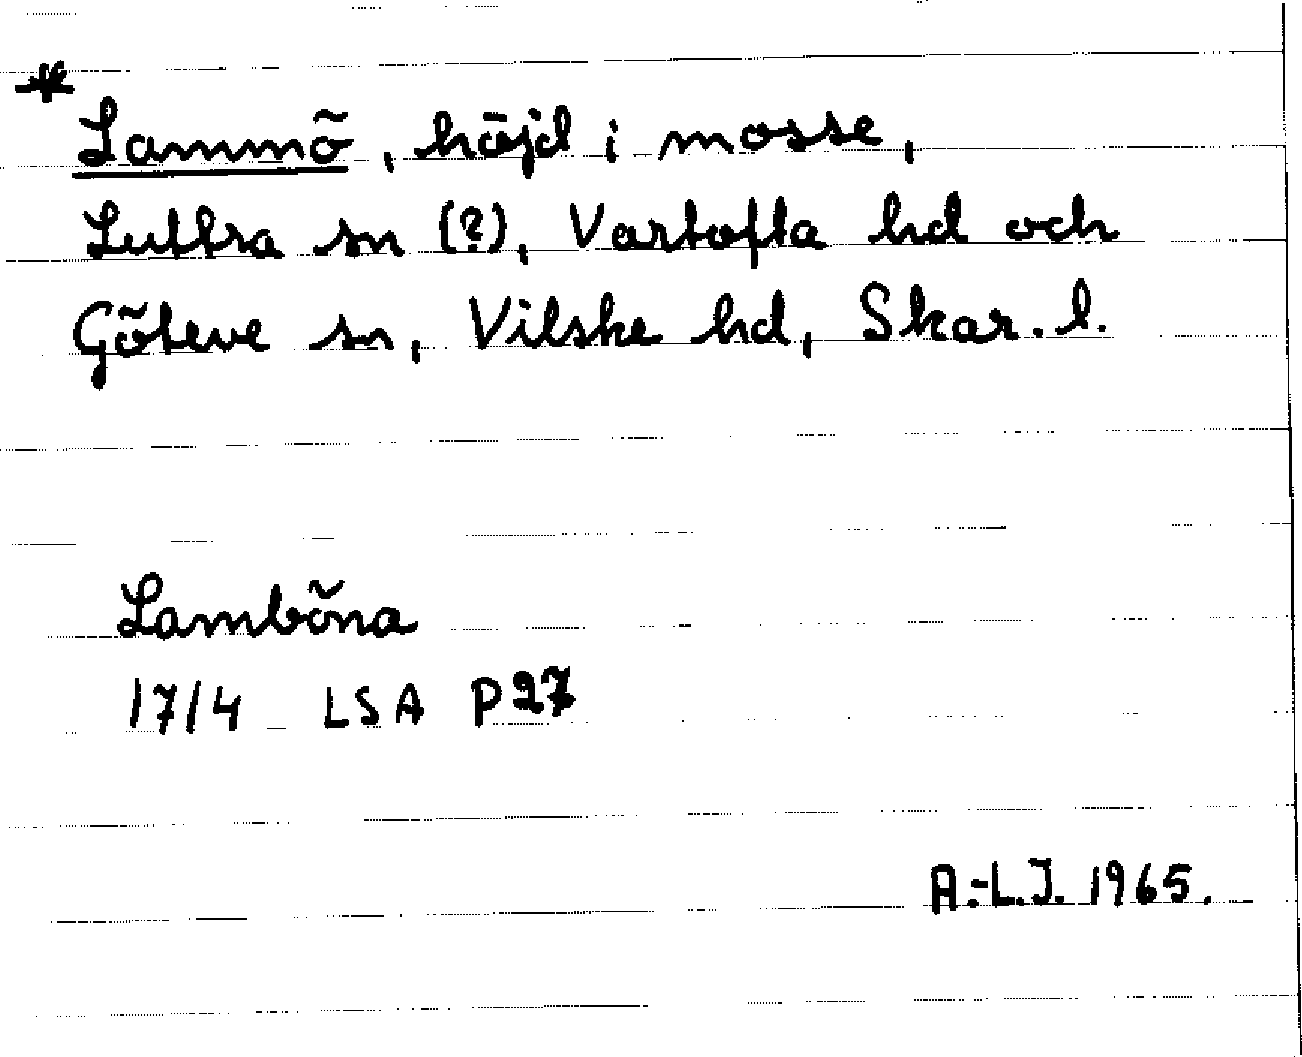 * Lammö, höjd i mosse,
Luttra sn (?), Vartofta hd och
Göteve sn, Vilske hd, Skar. l.
Lamböna
17/4 LSA P27
A.-L.J. 1965.